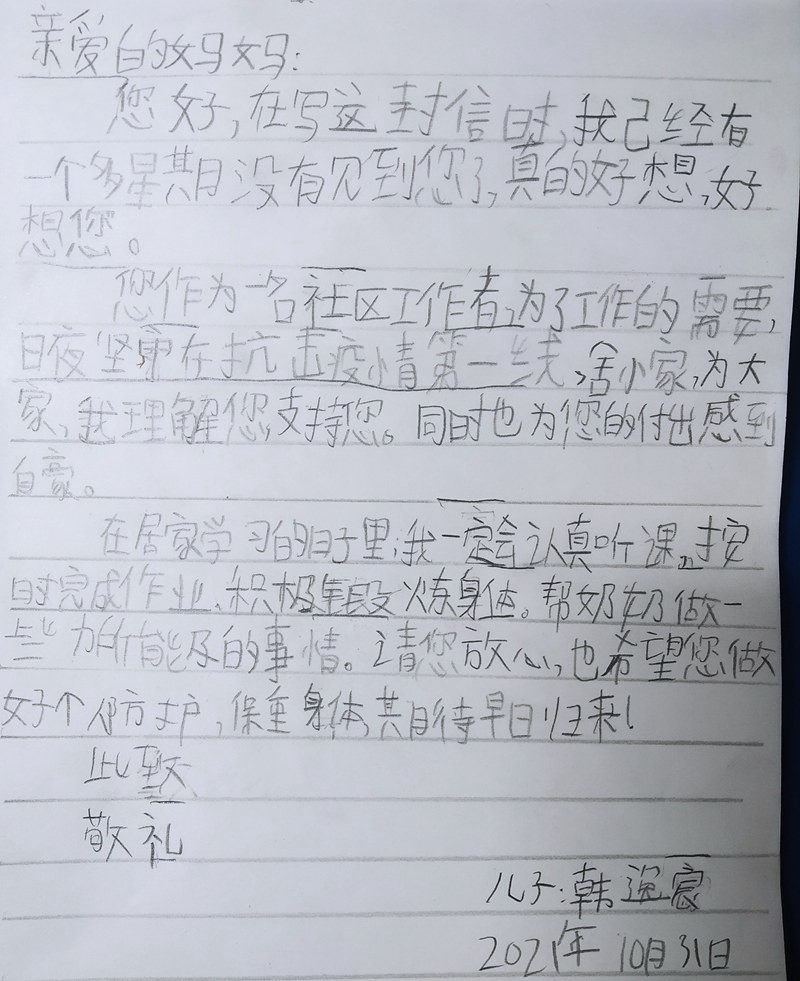 亲爱的妈妈：
您好，在写这封信时，我已经有
一个多星期没有见到您了，真的好想，好
想您。
您作为一名社区工作者，为了工作的需要，
日夜坚守在抗击疫情第一线，舍小家，为大
家，我理解您，支持您。同时也为您的付出感到
自豪。
在居家学习的日子里，我一定会认真听课，按
时完成作业、积极锻炼身体。帮奶奶做一
些力所能及的事情。请您放心，也希望您做
好个人防护，保重身体，期待早日归来！
此致
敬礼
儿子：韩宸
2021年10月31日